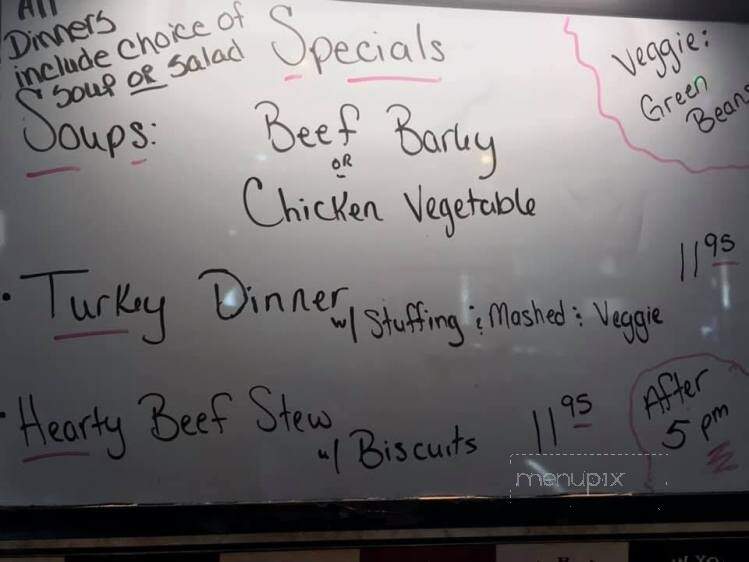 All
Dinners
include Choice of
Soup or Salad
Specials
Veggie:
Green
Beans
Soups:
Beef Barley
OR
Chicken Vegetable
11 95
• Turkey Dinner
w/ Stuffing & Mashed & Veggie
• Hearty Beef Stew
w/ Biscuits
11 95
After
5 pm
menupix